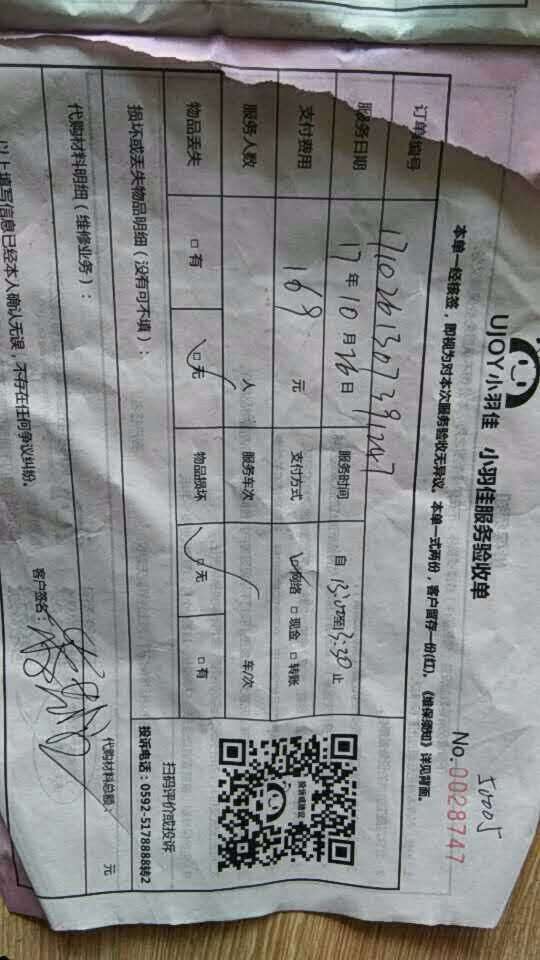 UJOY小羽佳 小羽佳服务验收单
50005
No.0028747
本单一经核签，即视为对本次服务验收无异议。本单一式两份，客户留存一份(红)。《维保须知》详见背面。
订单编号
服务日期 17年10月26日 服务时间 自13:00至13:30止
支付费用 169 元 支付方式 ☑网络 □现金 □转账
服务人数 人 服务车次 车/次
物品丢失 □有 ☑无 物品损坏 ☑无 □有
损坏或丢失物品明细（没有可不填）：
代购材料明细（维修业务）：
代购材料总额： 元
投诉或建议
扫码评价或投诉
投诉电话：0592-5178888转2
以上填写信息已经本人确认无误，不存在任何争议纠纷。
客户签名：